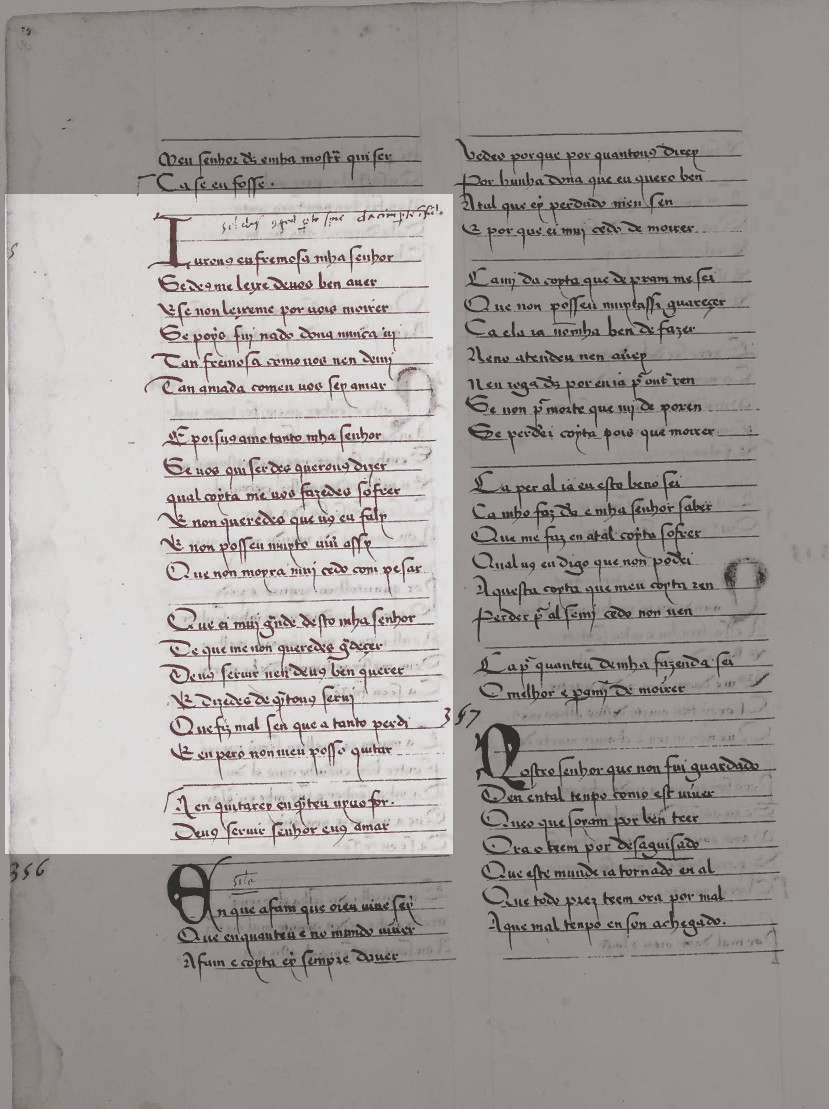 Meu senhor ds̃ emha mostrͬ quiser
Ca se eu fosse.
Iurou9 eu fremosa mha senhor
Se de9 me leixe deuos ben auer
Ese non leixeme por uos moirer
Se poio fuj nado dona nunca uj
Tan fremosa como uos nen deuij
Tan amada comeu uos sey amar
E pois u9 amo tanto mha senhor
Se uos quiserdes querou9 dizer
qual coyta me uos fazedes sofrer
E non queredes que u9 eu faly
E non posseu muyto uiu assy
Que non moyra muj cedo com pesar
Que ei muj gͣnde desto mha senhor
De que me non queredes gͣdeçer
Deu9 seruir nen deu9 ben querer
E dizedes de qͣtou9 serui
Que fiz mal sen que a tanto perdi
E en pero non meu posso quitar
Nen quitarey enqͣteu uyuo for.
Deu9 seruir senhor eu9 amar
356
En que afam que oieu uiue sey
Que enquanteu e no mundo uiuer
Afam e coyta ey sempre dauer
Uedes porque por quantou9 direy
Por hunha dona que eu quero ben
Atal que ey perdudo meu sen
E por que ei muj cedo de moirer.
Ca mj da coyta que de pram me sei
Que non posseu muytassi guareçer
Ca ela ia nonmha ben de fazer
Neno atendeu nen auey
Nen roga ds̃ por en ia pͬ outͬ ren
Se non pͬ morte que mj de poren
Se perderi coyta pois que moirer
Ca per al ia eu esto beno sei
Ca mho faz ds̃ e mha senhor saber
Que me faz en atal coyta sofrer
Qual u9 en digo que non poderi
Aquesta coyta que meu coyta ren
Perder pͬ al semj cedo non uen
Ca pͬ quanteu demha fazenda sei
O melhor e pͬa mj de moirer
357
Nostro senhor que non fui guardado
Den ental tenpo como est uiuer
Queo que soyam por ben teer
Ora o teem por desaguisado
Que este mund e ia tornado en al
Que todo prez teem ora por mal
A que mal tenpo en son achegado.